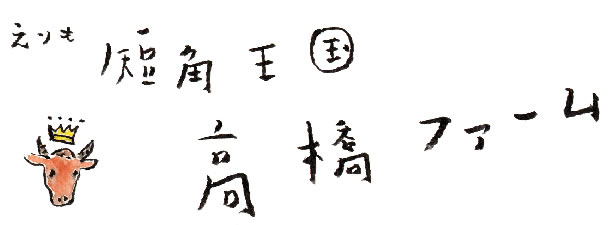 えりも 短角王国
高橋ファーム